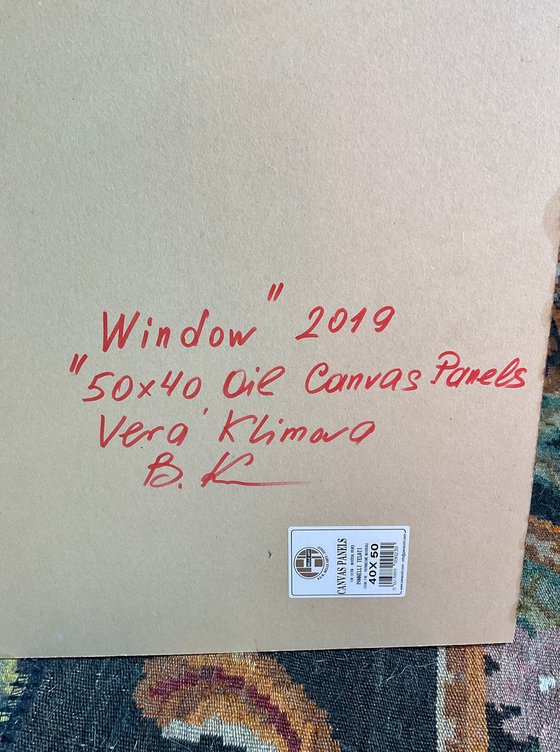 Window" 2019
"50x40 Oil Canvas Panels
Vera Klimova
В. К
CANVAS PANELS
PANNELLI TELATI
40X50